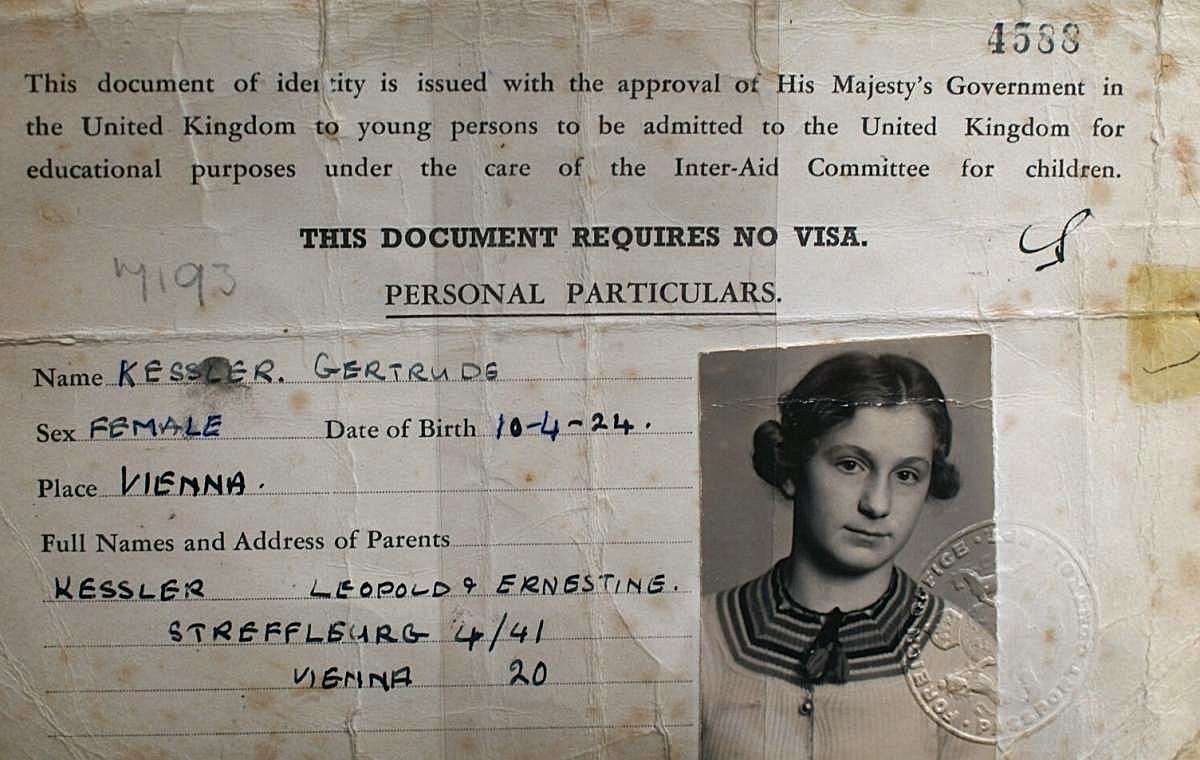 4588
This document of identity is issued with the approval of His Majesty's Government in
the United Kingdom to young persons to be admitted to the United Kingdom for
educational purposes under the care of the Inter-Aid Committee for children.
THIS DOCUMENT REQUIRES NO VISA.
PERSONAL PARTICULARS.
Name KESSLER. GERTRUDE
Sex FEMALE Date of Birth 10-4-24.
Place VIENNA.
Full Names and Address of Parents
KESSLER LEOPOLD & ERNESTINE.
STREFFLEURG 4/41
VIENNA 20